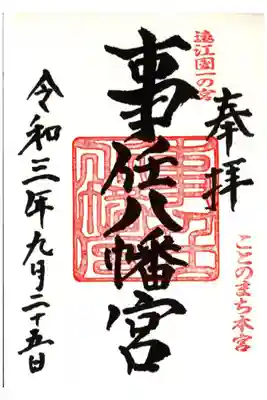 奉拝
遠江国一の宮
ことのまち本宮
事任八幡宮
令和三年九月二十五日